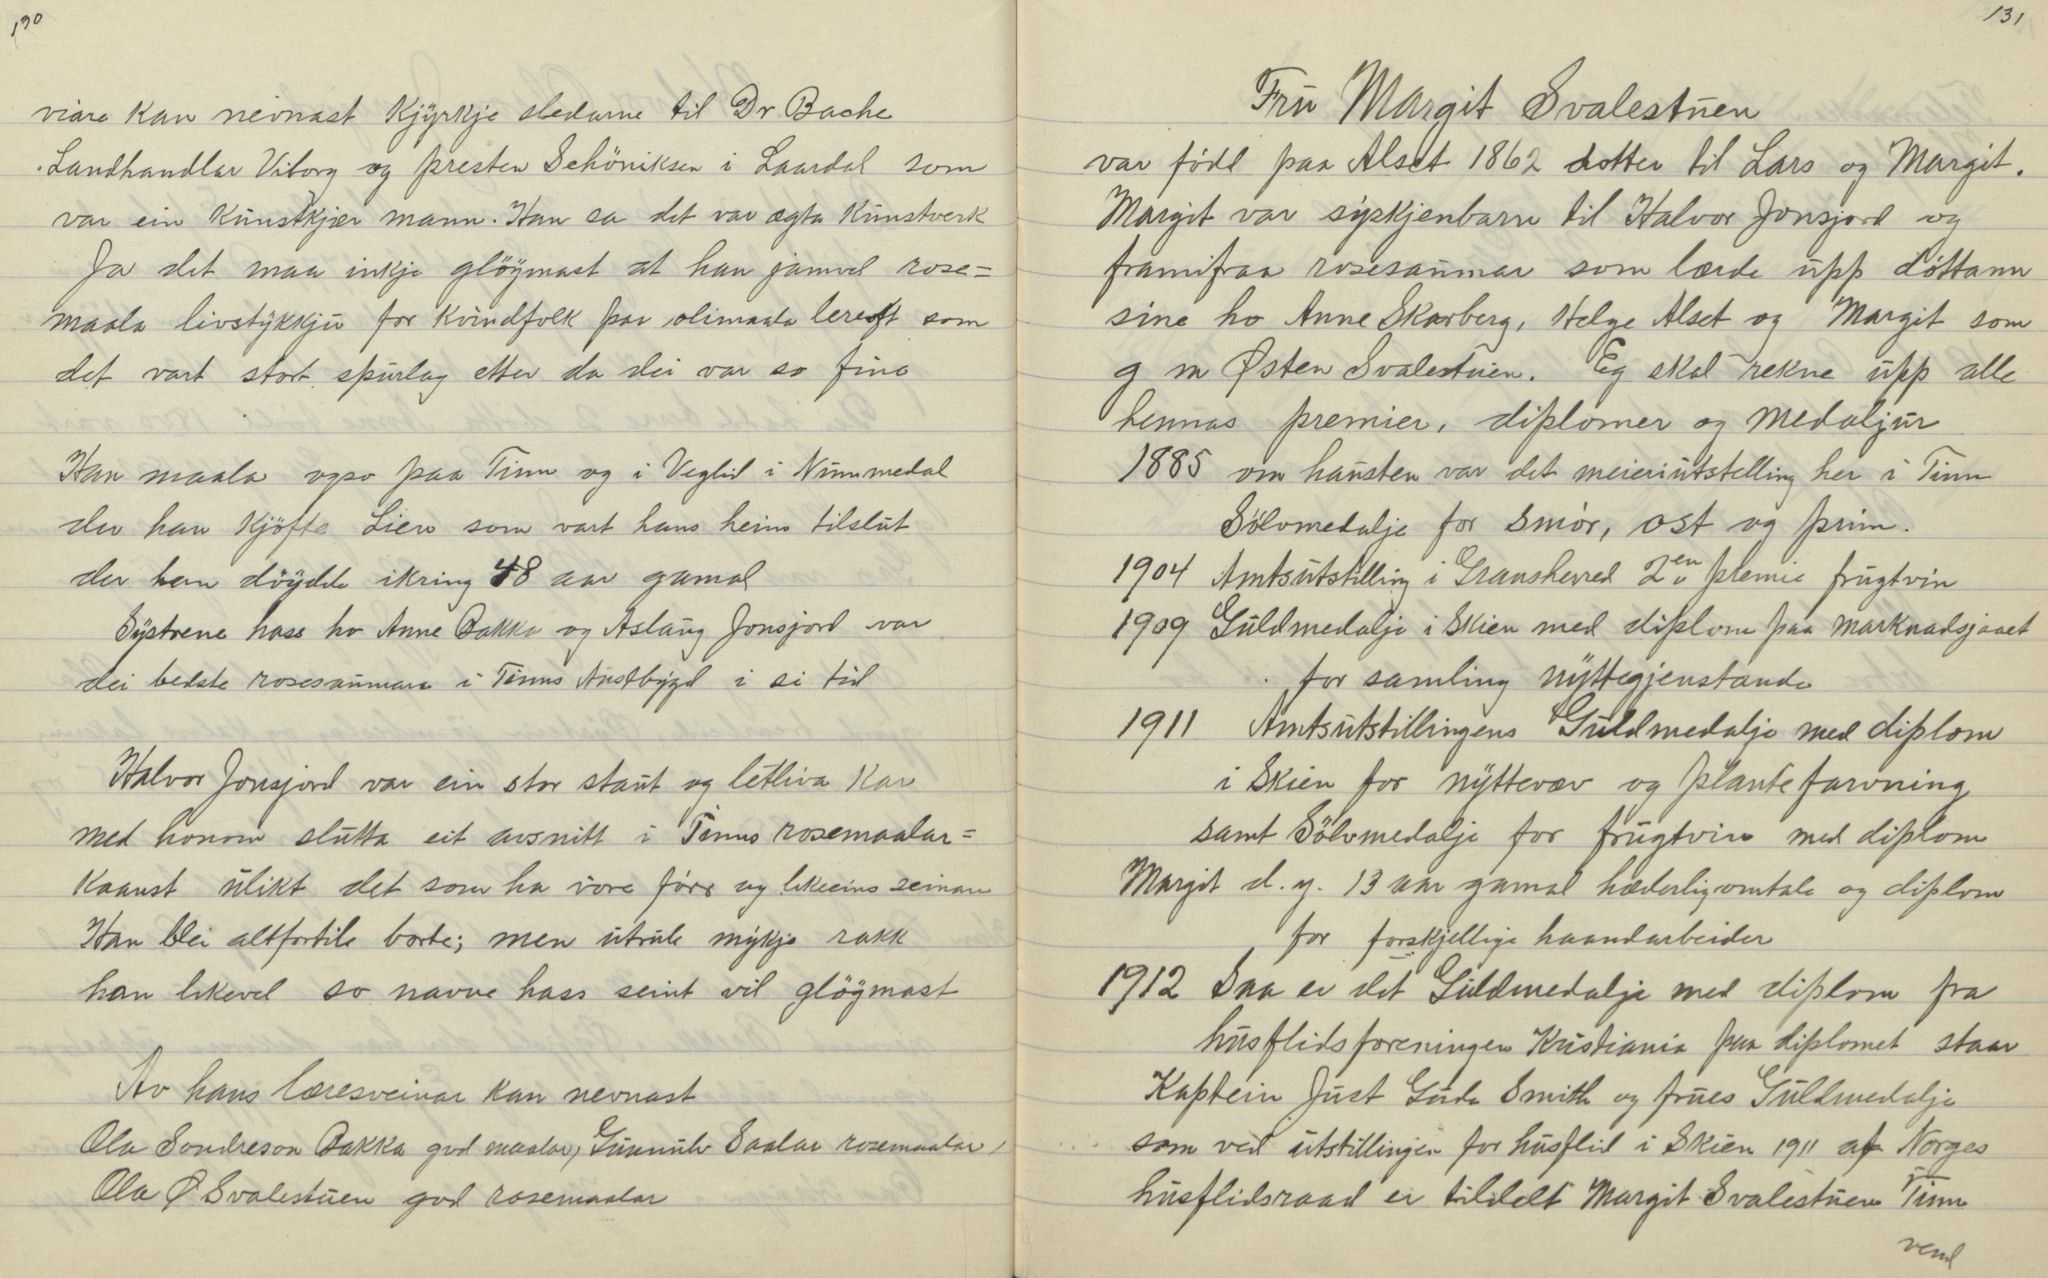 130
viare kan nevnast Kjyrkje sledarne til Dr Bache
Landhandlar Viborg og presten Schöniksen i Laardal som
var ein Kunstkjær mann. Han sa det var ægta Kunstverk
Ja det maa inkje glöymast at han jamvel rose=
maala livstykkju for Kvindfolk paa olimaala lereft som
det vart stort spurlag etter da dei var so fine
Han maala ogso paa Tinn og i Veglid i Nummedal
der han Kjöfte Lien som vart hans heim tilslut
der han döydde ikring 48 aar gamal
Systrene hass ho Anne Bakka og Aslaug Jonsjord var
dei bedste rosesaumara i Tinns Austbygd i si tid
Halvor Jonsjord var ein stor staut og letliva Kar
med honom slutta eit avsnitt i Tinns rosemaalar=
Kaanst ulikt det som ha vore förr og likeeins seinare
Han blei altfortile borte; men utrule mykje rakk
han likevel so navne hass seint vil glöymast
Av hans læresveinar kan nevnast
Ola Sondreson Bakka god maalar, Gunnulv Saalar rosemaalar,
Ola Ø Svalestuen god rosemaalar
131
Fru Margit Svalestuen
var född paa Alset 1862 dotter til Lars og Margit.
Margit var syskjenbarn til Halvor Jonsjord og
framifraa rosesaumar som lærde upp döttann
sine ho Anne Skarberg, Helge Alset og Margit som
g m Østen Svalestuen. Eg skal rekne upp alle
hennas premier, diplomer og medaljur
1885 om hausten var det meieriutstelling her i Tinn
Sölvmedalje for smör, ost og prim.
1904 Amtsutstilling i Gransherred 2en premie frugtvin
1909 Guldmedalje i Skien med diplom paa marknadsjaaet
for samling nyttegjenstande
1911 Amtsutstillingens Guldmedalje med diplom
i Skien for nyttevæv og plantefarvning
samt Sölvmedalje for frugtvin med diplom
Margit d. y. 13 aar gamal hæderligomtale og diplom
for forskjellige haandarbeider
1912 Saa er det Guldmedalje med diplom fra
husflidsforeningen Kristiania paa diplomet staar
Kaptein Just Guda Smith og frues Guldmedalje
som ved utstillingen for husflid i Skien 1911 af Norges
husflidsraad er tildelt Margit Svalestuen Tinn
vend